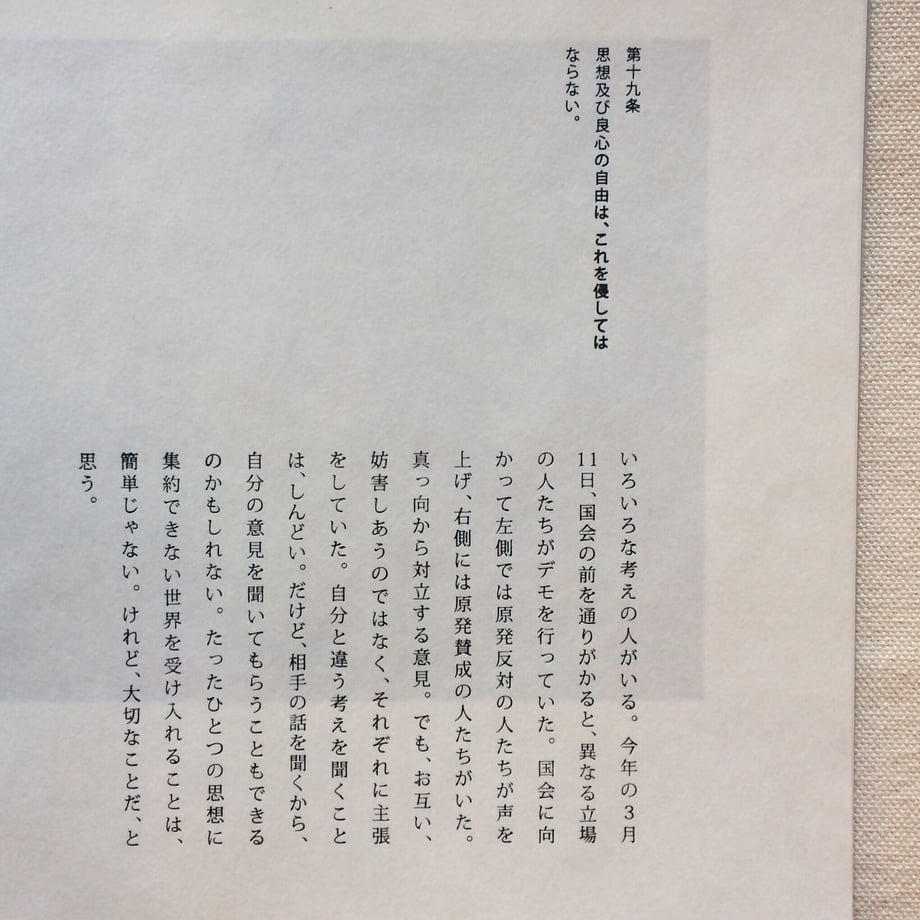 第十九条
思想及び良心の自由は、これを侵しては
ならない。
いろいろな考えの人がいる。今年の3月
11日、国会の前を通りがかると、異なる立場
の人たちがデモを行っていた。国会に向
かって左側では原発反対の人たちが声を
上げ、右側には原発賛成の人たちがいた。
真っ向から対立する意見。でも、お互い、
妨害しあうのではなく、それぞれに主張
をしていた。自分と違う考えを聞くこと
は、しんどい。だけど、相手の話を聞くから、
自分の意見を聞いてもらうこともできる
のかもしれない。たったひとつの思想に
集約できない世界を受け入れることは、
簡単じゃない。けれど、大切なことだ、と
思う。